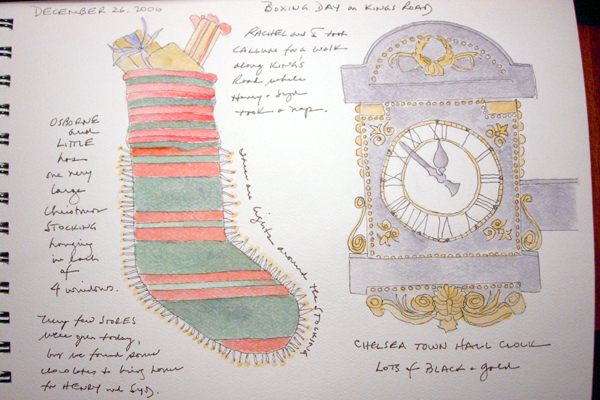 DECEMBER 26, 2006
BOXING DAY on KINGS ROAD
RACHEL and I took
CALLUM for a walk
along KING'S
Road while
Henry + Syd
took a nap.
OSBORNE
and
LITTLE
has
one very
large
Christmas
STOCKING
hanging
in each
of
4 windows.
There are lights around the STOCKING
Very few STORES
were open today,
but we found some
chocolates to bring home
for HENRY and SYD.
CHELSEA TOWN HALL CLOCK
LOTS of BLACK + gold